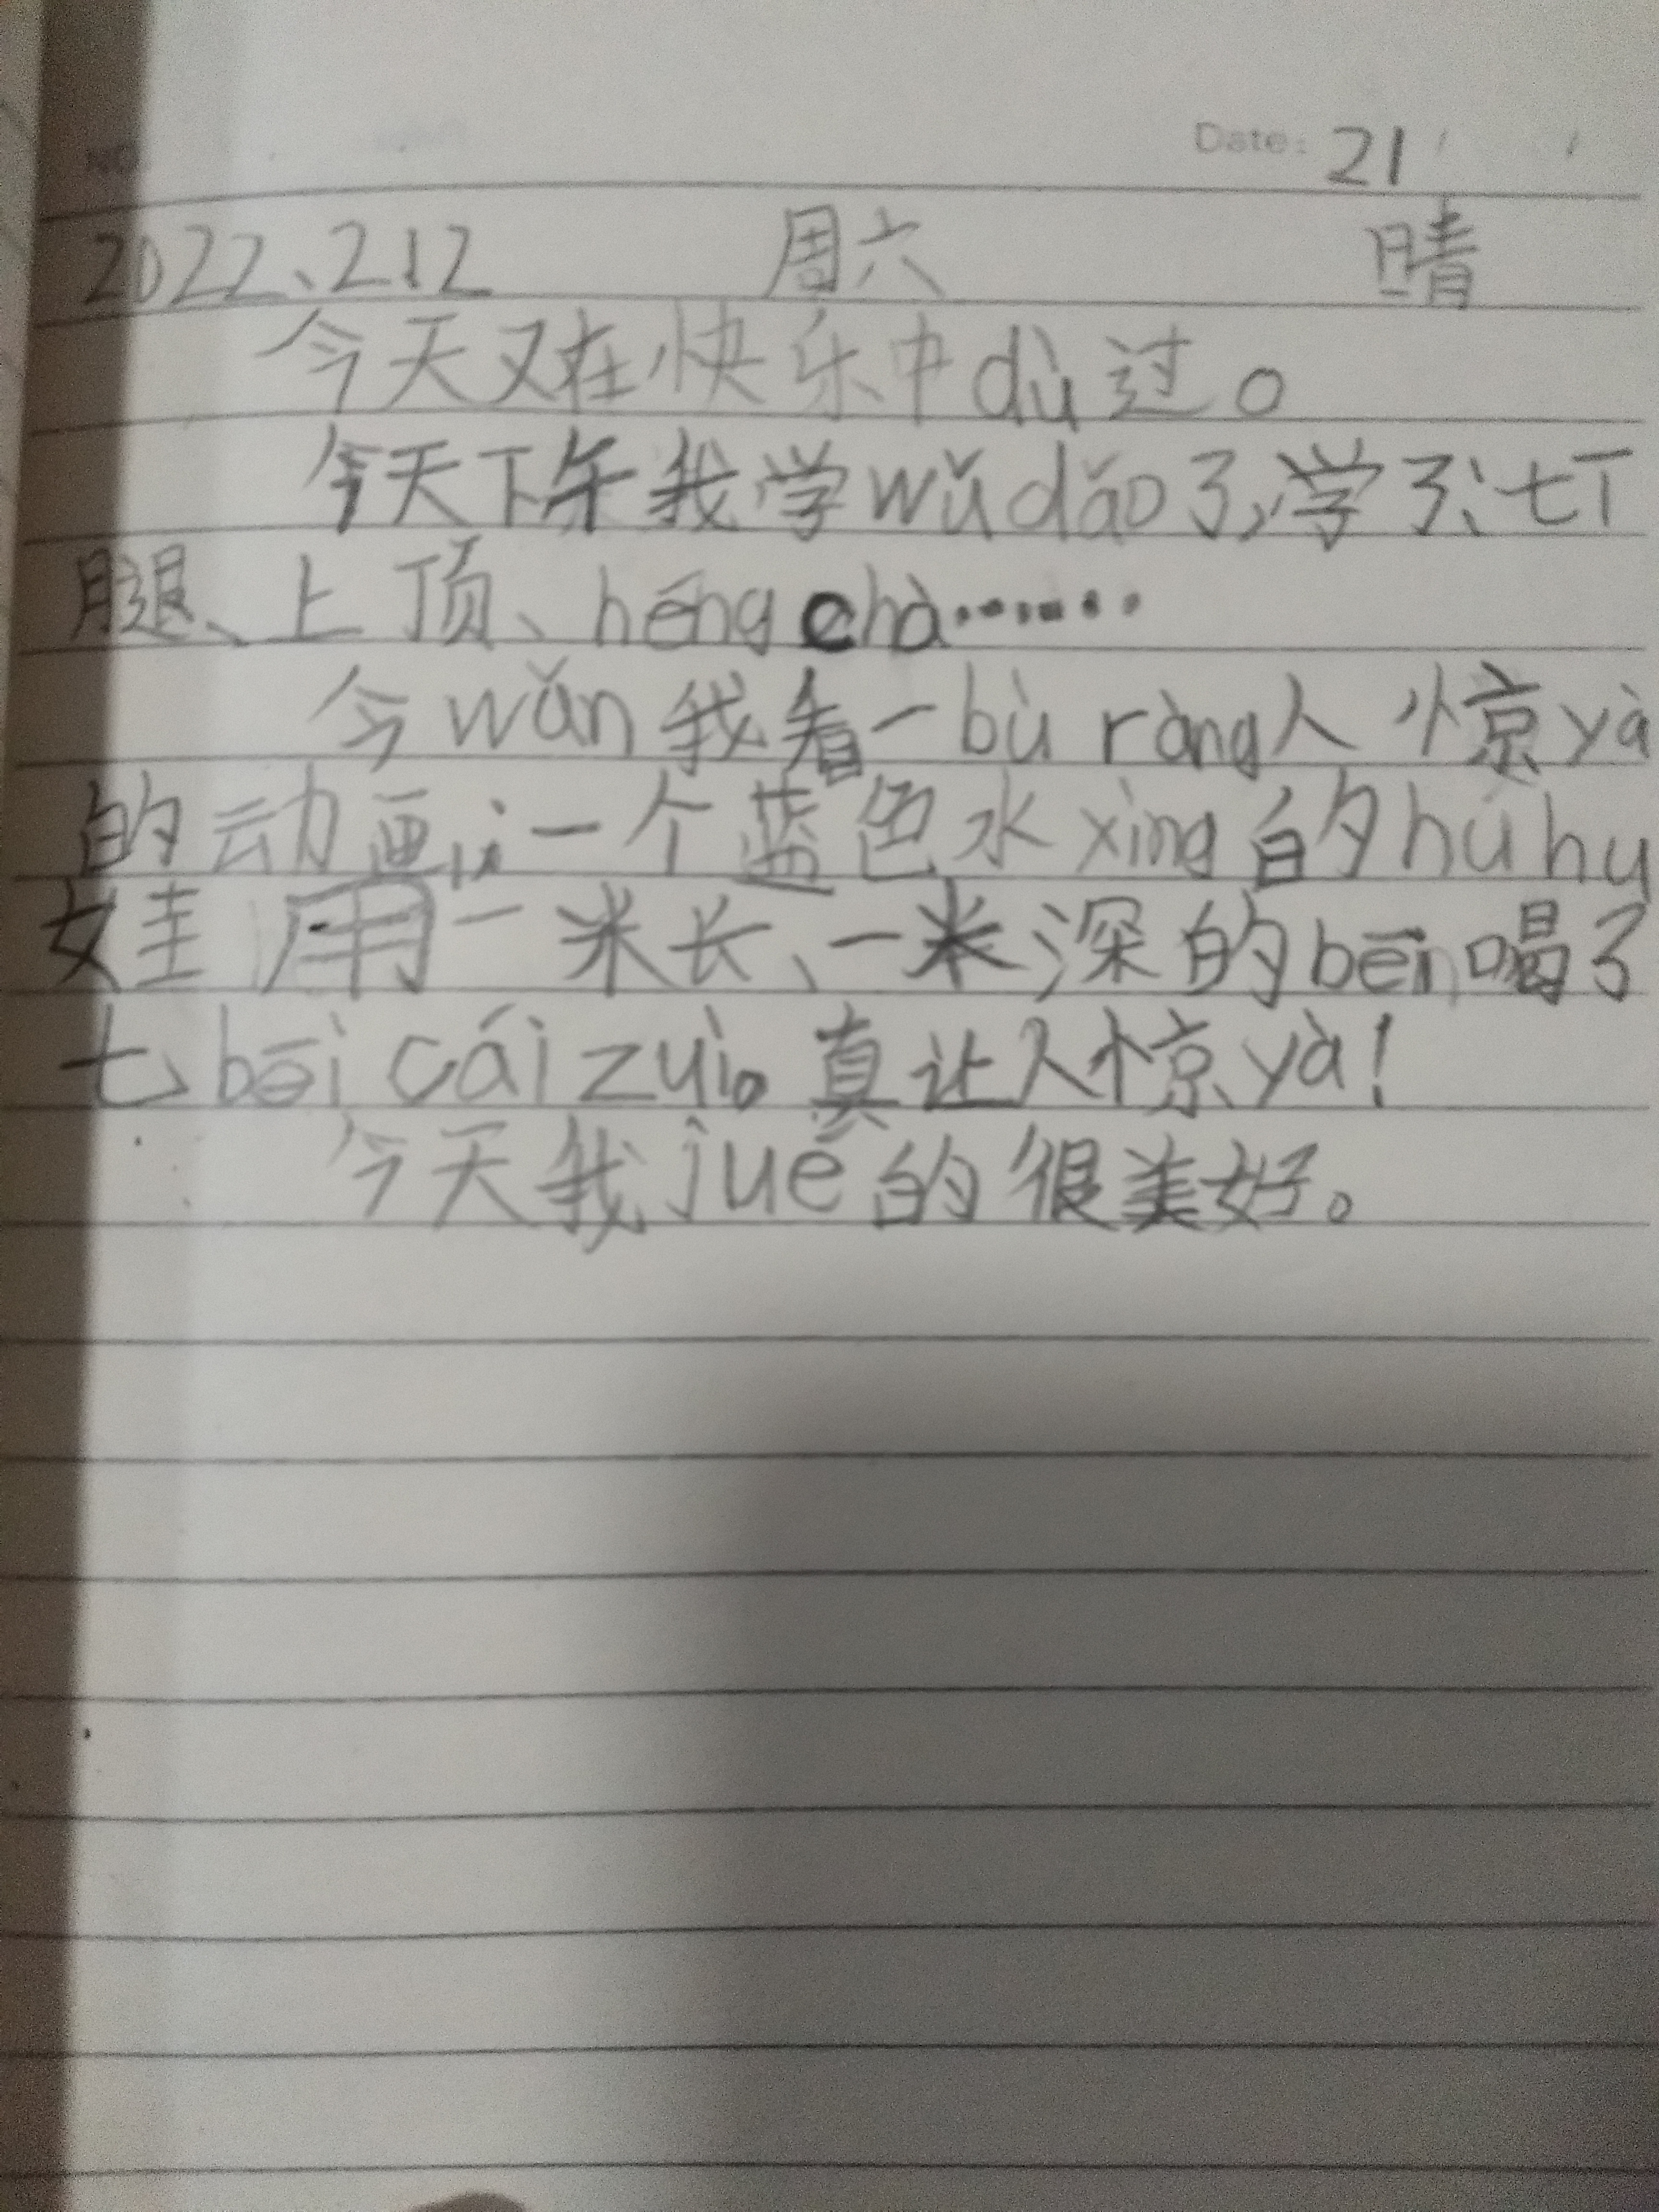 Date: 21
2022、212 周六 晴
今天又在快乐中dù过。
今天下午我学wǔdǎo了,学了:七丁
腿、上顶、héng chà……
今wǎn我看一bù ràng人惊yà
的动画,:一个蓝色水xìng的hú hu
娃用一米长、一米深的bēi喝了
七bēi cái zuì。真让人惊yà!
今天我jué的很美好。